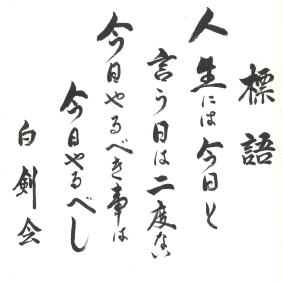 標語
人生には今日と
言う日は二度ない
今日やるべき事は
今日やるべし
白剣会